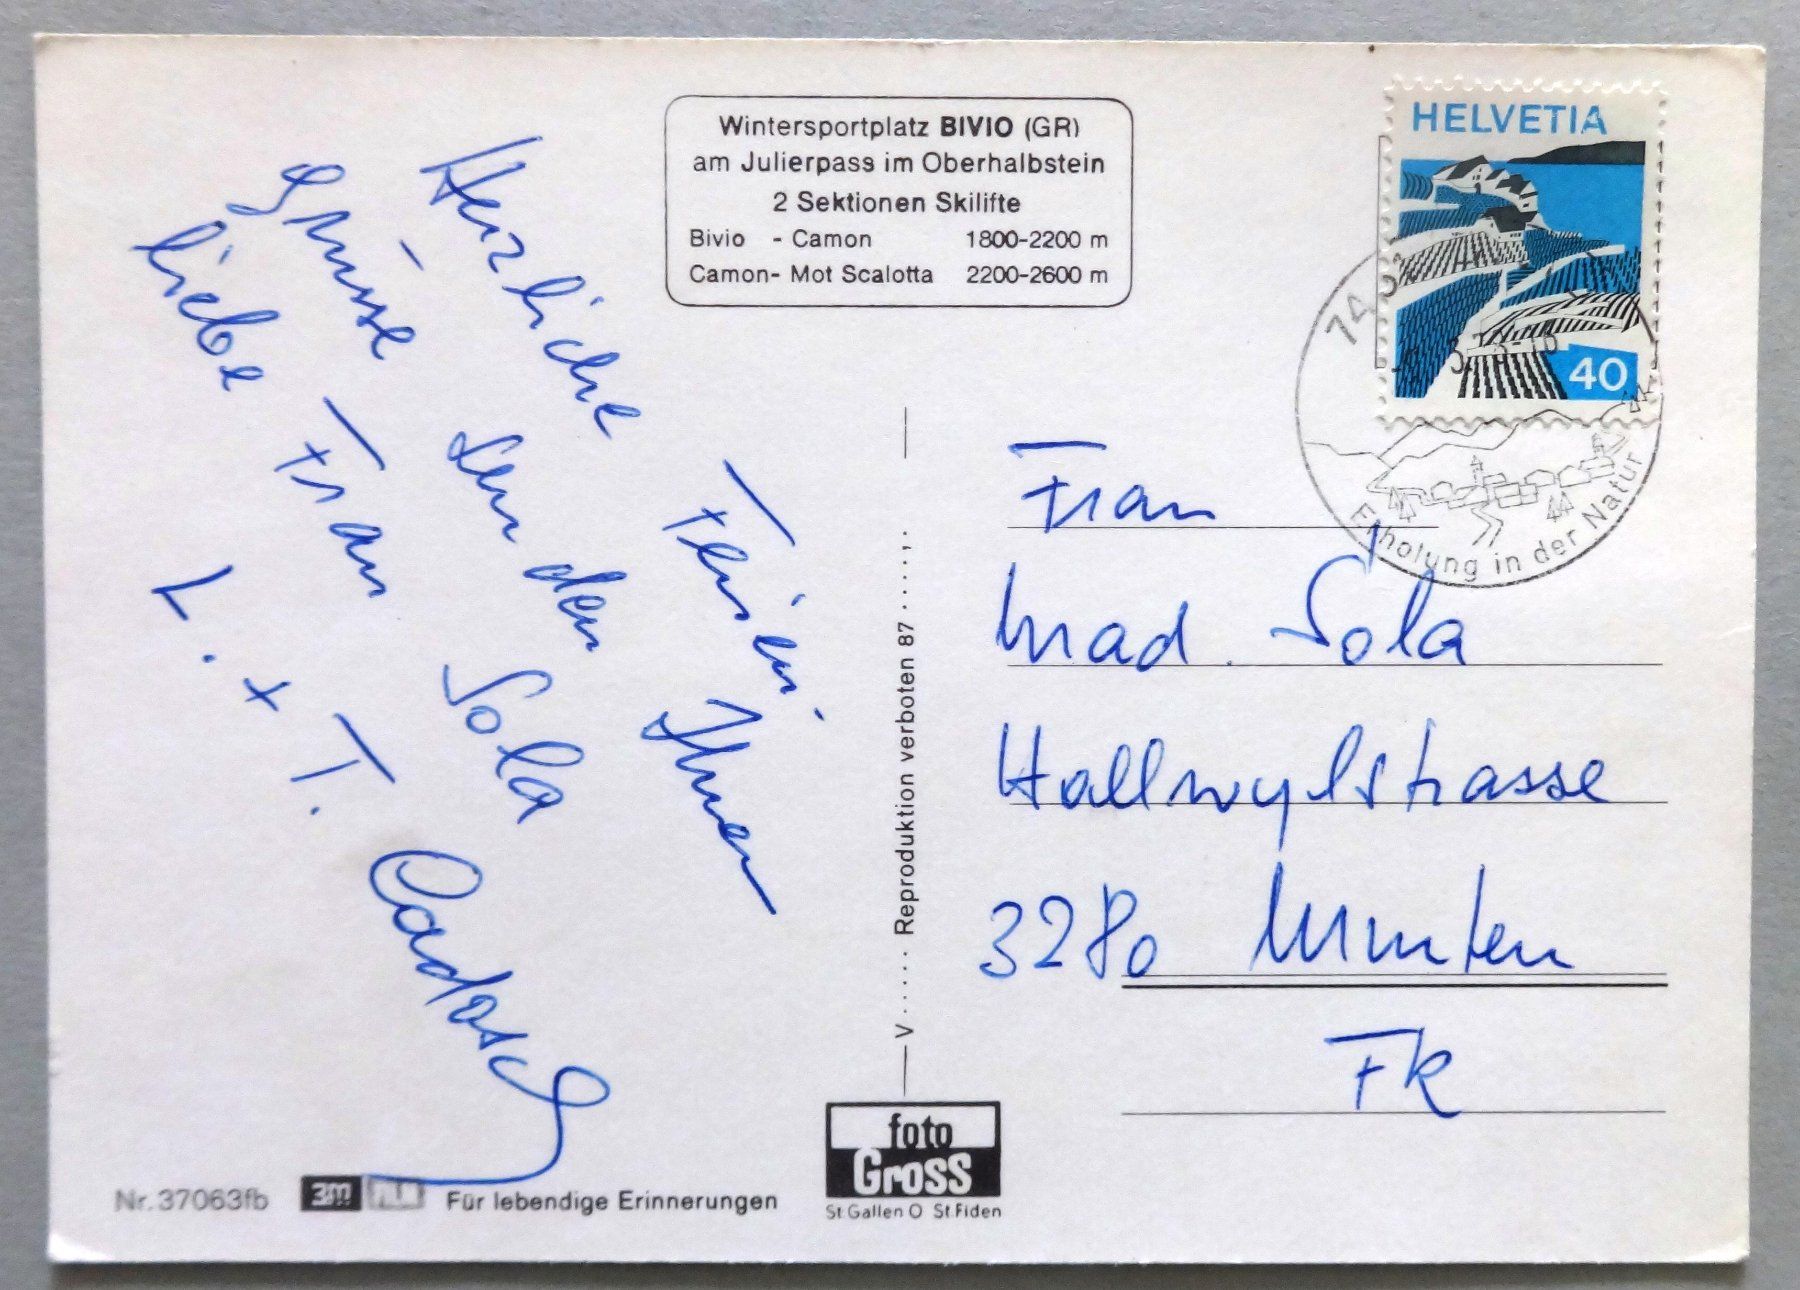 Wintersportplatz BIVIO (GR)
am Julierpass im Oberhalbstein
2 Sektionen Skilifte
Bivio - Camon 1800-2200 m
Camon - Mot Scalotta 2200-2600 m
HELVETIA
40
74
Erholung in der Natur
Herzliche Ferien-
Grüsse senden Ihnen
liebe Frau Sola
L. + T. Cadosch
Frau
Mad. Sola
Hallwylstrasse
3280 Murten
FR
V ..... Reproduktion verboten 87 ......
Nr. 37063fb
3M
Für lebendige Erinnerungen
foto
Gross
St. Gallen O St. Fiden